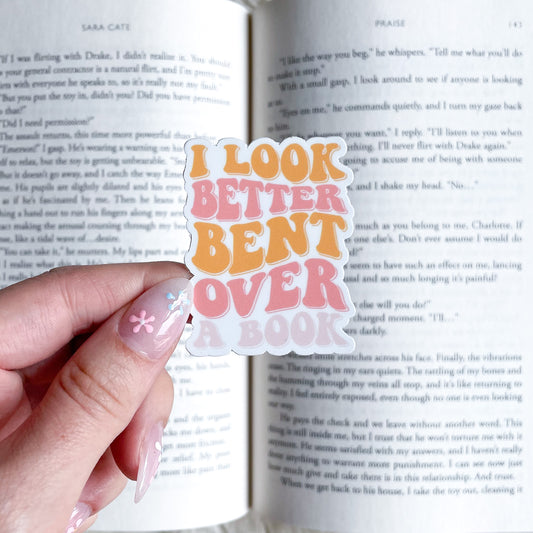 SARA CATE
"If I was flirting with Drake, I didn't realize it. You should
your general contractor is a natural flirt, and I'm pretty
with everyone he speaks to, so it's really not my fault."
"But you put the toy in, didn't you? Did you have permission
that?"
"Did I need permission?"
The assault returns, this time more powerful
"Emerson!" I gasp. He's wearing a warning on his
self to relax, but the toy is getting unbearable.
But it doesn't go away, and I catch the way
me. His pupils are slightly dilated and his
as if he's fascinated by me. Then he leans
ching a hand out to run his fingers along my
act making the arousal coursing through my
de, like a tidal wave of...desire.
"You can take it," he murmurs. My lips part
PRAISE
143
"I like the way you beg," he whispers. "Tell me what you'll do
to make it stop."
With a small gasp, I look around to see if anyone is looking
"Eyes on me," he commands quietly, and I turn my gaze back
to him.
you want," I reply. "I'll listen to you when
thing. I'll never flirt with Drake again."
going to accuse me of being with someone
and I shake my head. "No…"
much as you belong to me, Charlotte. If
one else's. Don't ever assume I would do
seem to have such an effect on me, lancing
and so much longing it's painful?
else will you do?"
charged moment. "I'll…"
ers darkly.
stretches across his face. Finally, the vibrations
cease. The ringing in my ears quiets. The rattling of my bones and
the humming through my veins all stop, and it's like returning to
reality. I feel entirely exposed, even though no one is even looking
our way.
He pays the check and we leave without another word. This
thing is still inside me, but I trust that he won't torture me with it
anymore. He seems satisfied with my answers, and I haven't really
done anything to warrant more punishment. I can see now just
how much give and take there is in this relationship. And trust.
When we get back to his house, I take the toy out, cleaning it
I LOOK
BETTER
BENT
OVER
A BOOK